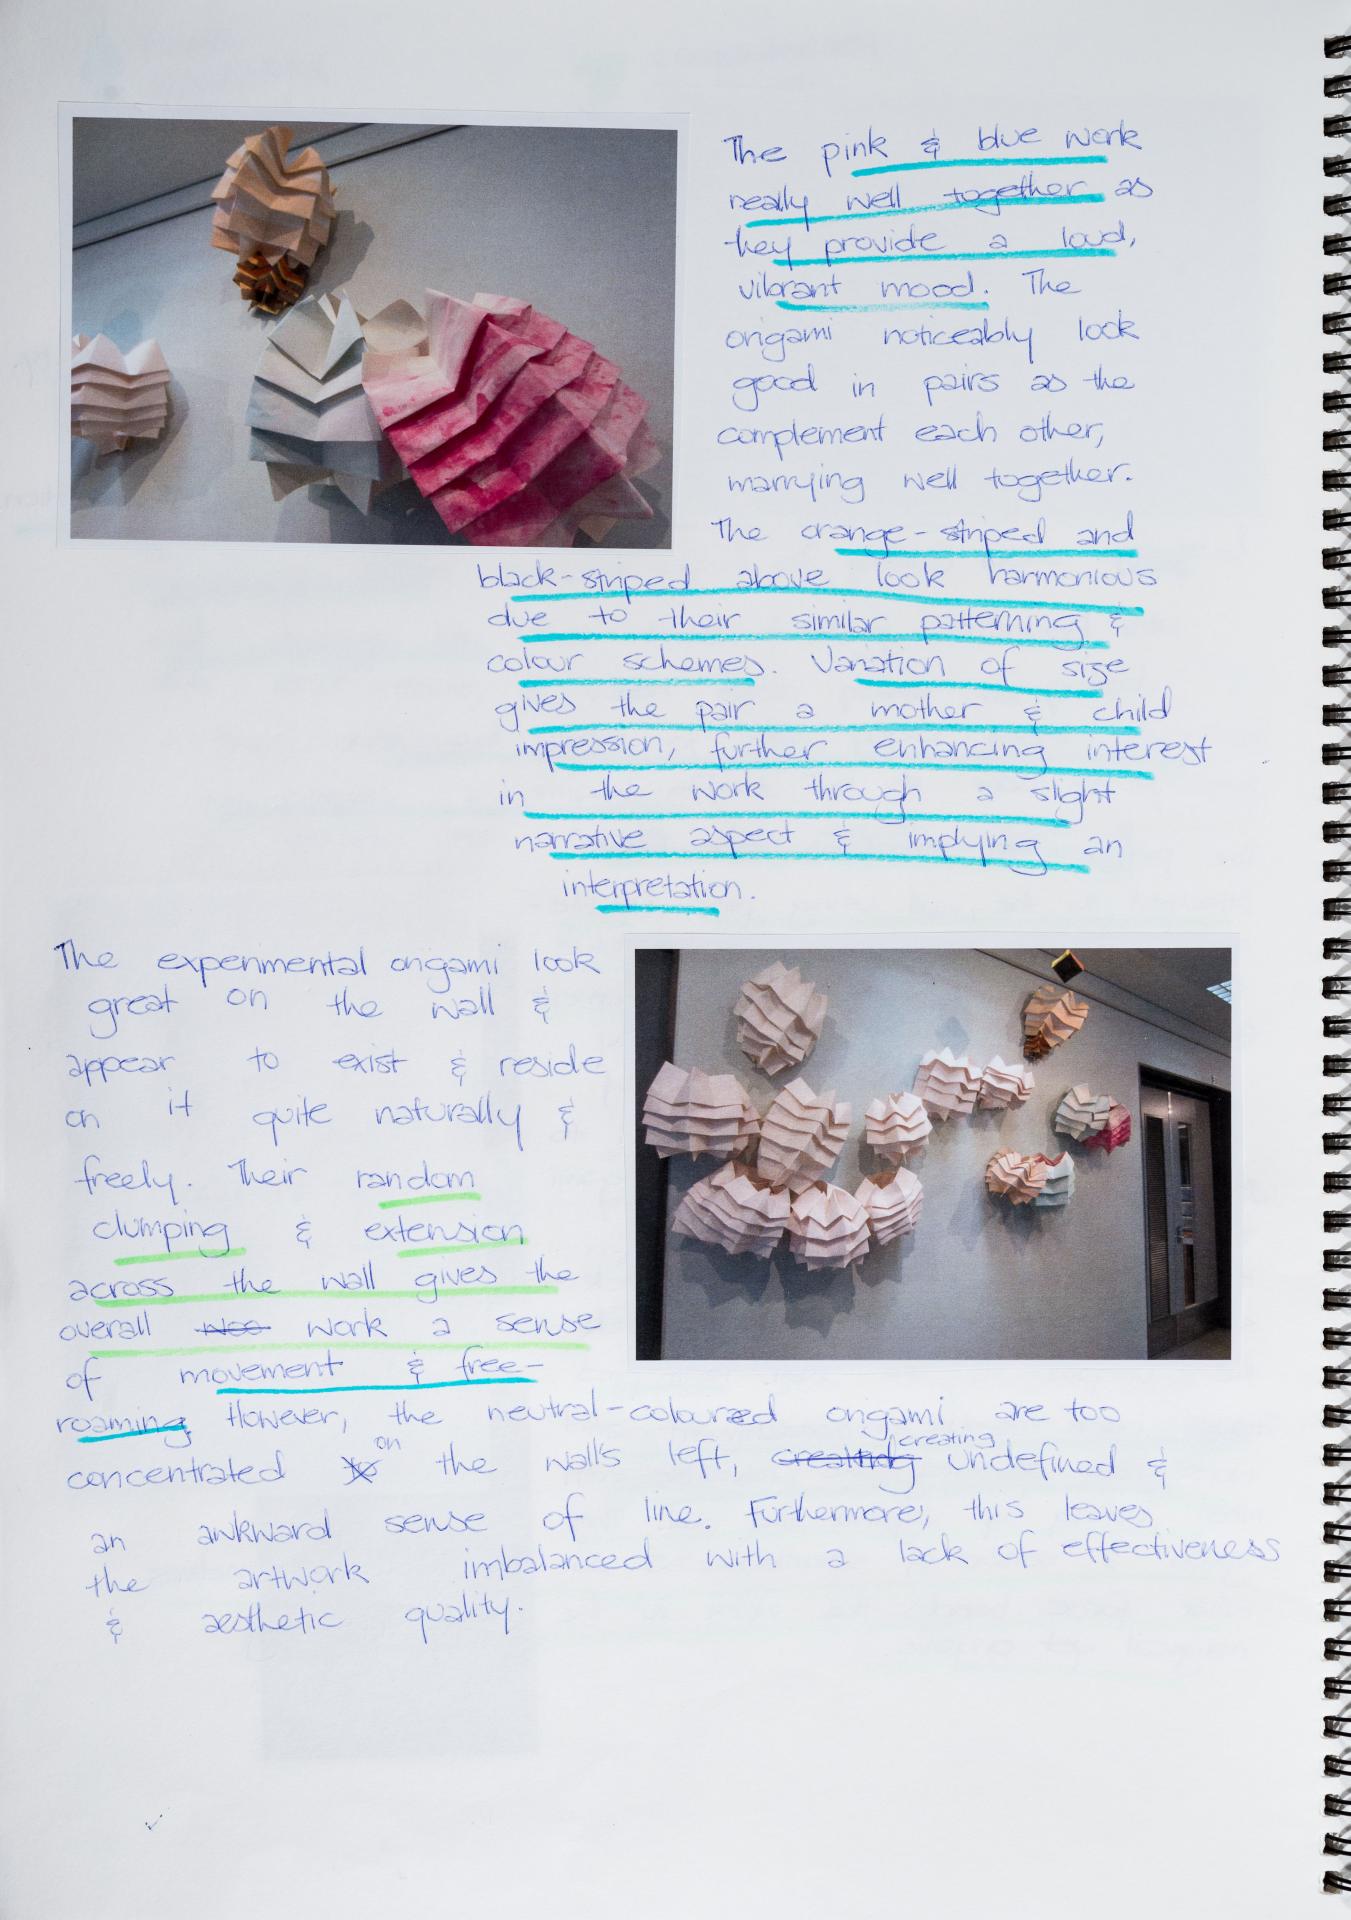 The pink & blue work
really well together as
they provide a loud,
vibrant mood. The
origami noticeably look
good in pairs as the
complement each other,
marrying well together.
The orange-striped and
black-striped above look harmonious
due to their similar patterning &
colour schemes. Variation of size
gives the pair a mother & child
impression, further enhancing interest
in the work through a slight
narrative aspect & implying an
interpretation.
The experimental origami look
great on the wall &
appear to exist & reside
on it quite naturally &
freely. Their random
clumping & extension
across the wall gives the
overall work a sense
of movement & free-
roaming. However, the neutral-coloured origami are too
concentrated on the wall's left, creating undefined &
an awkward sense of line. Furthermore, this leaves
the artwork imbalanced with a lack of effectiveness
& aesthetic quality.